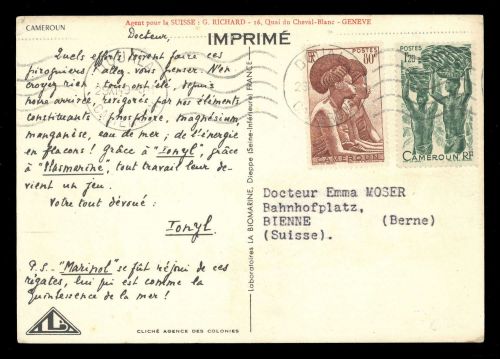 CAMEROUN
Agent pour la SUISSE : G. RICHARD - 16, Quai du Cheval-Blanc - GENEVE
IMPRIMÉ
Docteur,
Quels efforts doivent faire ces
piroguiers ! allez-vous penser. N'en
croyez rien : tous ont été, depuis
notre arrivée, revigorés par nos éléments
constituants : phosphore, magnésium,
manganèse, eau de mer ; de l'énergie
en flacons ! Grâce à "Ionyl", grâce
à "Plasmarine", tout travail leur de-
vient un jeu.
Votre tout dévoué :
Ionyl.
P.S. - "Marinol" se fût réjoui de ces
régates, lui qui est comme la
quintessence de la mer !
CLICHÉ AGENCE DES COLONIES
Laboratoires LA BIOMARINE, Dieppe (Seine-Inférieure) FRANCE
RF POSTES 60c
CAMEROUN
POSTES
1.20
CAMEROUN RF
Docteur Emma MOSER
Bahnhofplatz,
BIENNE (Berne)
(Suisse).